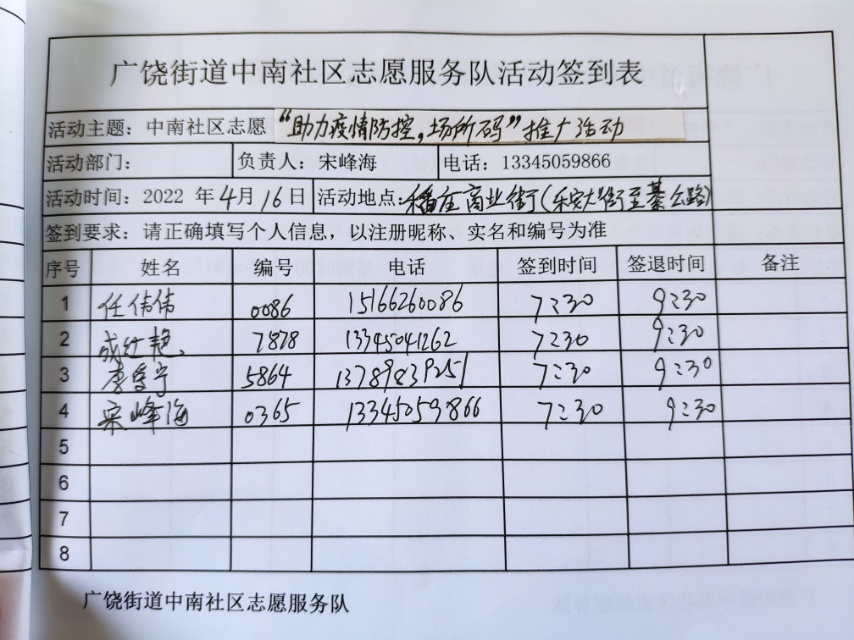 广饶街道中南社区志愿服务队活动签到表
活动主题：中南社区志愿 “助力疫情防控，场所码”推广活动
活动部门： 负责人：宋峰海 电话：13345059866
活动时间：2022 年4月16日 活动地点：稻庄商业街（乐安大街至綦公路）
签到要求：请正确填写个人信息，以注册昵称、实名和编号为准
序号 姓名 编号 电话 签到时间 签退时间 备注
1 任伟伟 0086 15166260086 7:30 9:30
2 成红艳 7878 13345041262 7:30 9:30
3 李雪宁 5864 13789839251 7:30 9:30
4 宋峰海 0365 13345059866 7:30 9:30
5
6
7
8
广饶街道中南社区志愿服务队